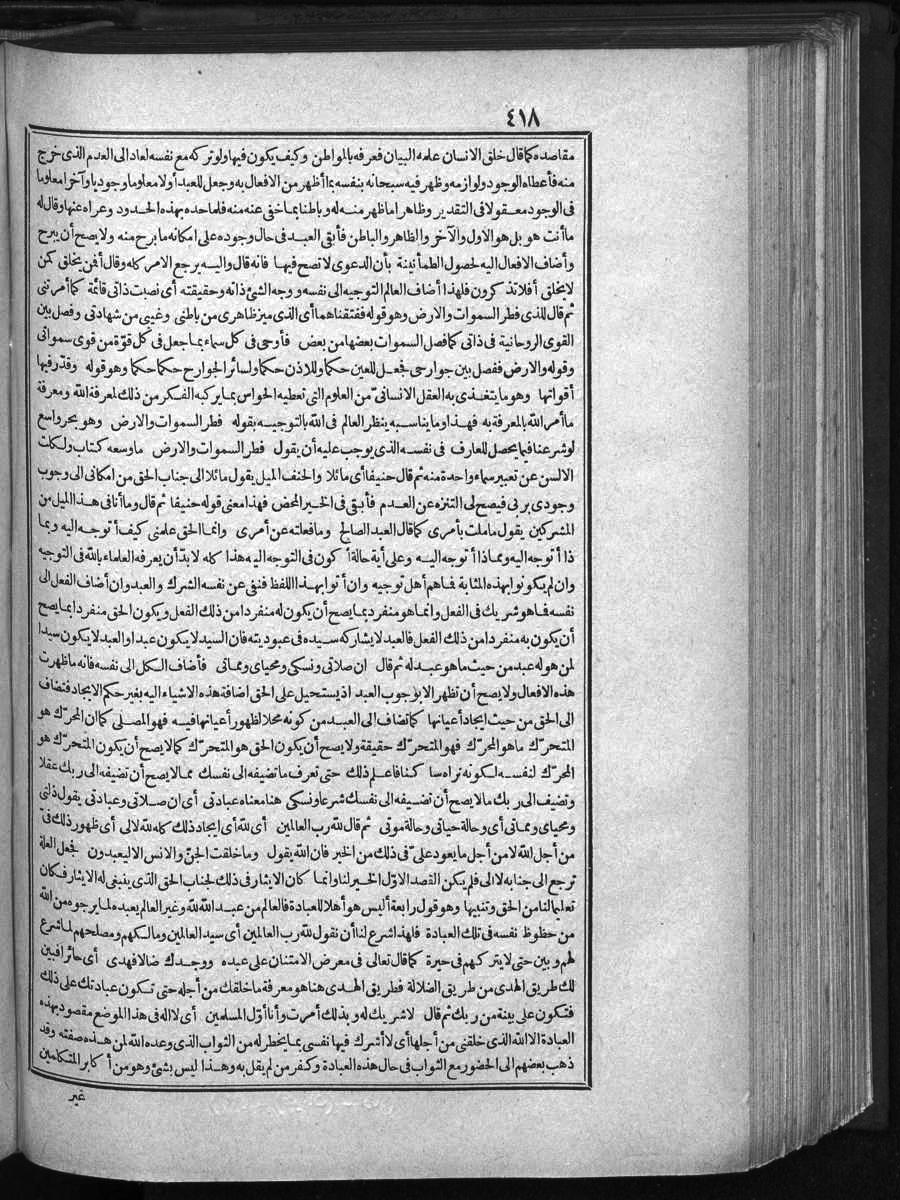 ٤١٨
مقاصده كما قال خلق الانسان علمه البيان فعرفه بالمواطن وكيف يكون فيها ولو تركه مع نفسه لعاد الى العدم الذى خرج
منه فأعطاه الوجود ولوازمه وظهر فيه سبحانه بنفسه بما أظهر من الافعال به وجعل للعبد أولا معلوما وجوديا وآخرا معلوما
فى الوجود معقولا فى التقدير وظاهرا ما ظهر منه له وباطنا بما خفى عنه منه فلما حده بهذه الحدود وعراه عنها وقال له
ما أنت هو بل هو الاول والآخر والظاهر والباطن فأبقى العبد فى حال وجوده على امكانه ما برح منه ولا يصح أن يبرح
وأضاف الافعال اليه لحصول الطمأنينة بأن الدعوى لا تصح فيها فانه قال واليه يرجع الامر كله وقال أفمن يخلق كمن
لا يخلق أفلا تذكرون فلهذا أضاف العالم التوجيه الى نفسه ووجه الشئ ذاته وحقيقته أى نصبت ذاتى قائمة كما أمرتنى
ثم قال للذى فطر السموات والارض وهو قوله ففتقناهما أى الذى ميز ظاهرى من باطنى وغيبى من شهادتى وفصل بين
القوى الروحانية فى ذاتى كما فصل السموات بعضها من بعض فأوحى فى كل سماء بما جعل فى كل قوة من قوى سمواتى
وقوله والارض ففصل بين جوارحى فجعل للعين حكما وللاذن حكما ولسائر الجوارح حكما حكما وهو قوله وقدر فيها
أقواتها وهو ما يتغذى به العقل الانسانى من العلوم التى تعطيه الحواس بما يركبه الفكر من ذلك لمعرفة الله ومعرفة
ما أمر الله بالمعرفة به فهذا وما يناسبه ينظر العالم فى الله بالتوجيه بقوله فطر السموات والارض وهو بحر واسع
لو شرعنا فيما يحصل للعارف فى نفسه الذى يوجب عليه أن يقول فطر السموات والارض ما وسعه كتاب ولكلت
الالسن عن تعبير سماء واحدة منه ثم قال حنيفا أى مائلا والحنف الميل يقول مائلا الى جناب الحق من امكانى الى وجوب
وجودى بربى فيصح لى التنزه عن العدم فأبقى فى الخير المحض فهذا معنى قوله حنيفا ثم قال وما أنا فى هذا الميل من
المشركين يقول ما ملت بأمرى كما قال العبد الصالح وما فعلته عن أمرى وانما الحق علمنى كيف أتوجه اليه وبما
ذا أتوجه اليه ومماذا أتوجه اليه وعلى أية حالة أكون فى التوجه اليه هذا كله لا بد أن يعرفه العلماء بالله فى التوجيه
وان لم يكونوا بهذه المثابة فما هم أهل توجيه وان أتوا بهذا اللفظ فنفى عن نفسه الشرك والعبد وان أضاف الفعل الى
نفسه فما هو شريك فى الفعل وانما هو منفرد بما يصح أن يكون له منفردا من ذلك الفعل ويكون الحق منفردا بما يصح
أن يكون به منفردا من ذلك الفعل فالعبد لا يشاركه سيده فى عبوديته فان السيد لا يكون عبدا والعبد لا يكون سيدا
لمن هو له عبد من حيث ما هو عبد له ثم قال ان صلاتى ونسكى ومحياى ومماتى فأضاف الكل الى نفسه فانه ما ظهرت
هذه الافعال ولا يصح أن تظهر الا بوجوب العبد اذ يستحيل على الحق اضافة هذه الاشياء اليه بغير حكم الايجاد فتضاف
الى الحق من حيث ايجاد أعيانها كما تضاف الى العبد من كونه محلا لظهور أعيانها فيه فهو المصلى كما ان المحرك هو
المتحرك ما هو المحرك فهو المتحرك حقيقة ولا يصح أن يكون الحق هو المتحرك كما لا يصح أن يكون المتحرك هو
المحرك لنفسه لكونه نراه ساكنا فاعلم ذلك حتى تعرف ما تضيفه الى نفسك مما لا يصح أن تضيفه الى ربك عقلا
وتضيف الى ربك ما لا يصح أن تضيفه الى نفسك شرعا ونسكى هنا معناه عبادتى أى ان صلاتى وعبادتى يقول ذلتى
ومحياى ومماتى أى وحالة حياتى وحالة موتى ثم قال لله رب العالمين أى لله أى ايجاد ذلك كله لله لا لى أى ظهور ذلك فىّ
من أجل الله لا من أجل ما يعود علىّ فى ذلك من الخير فان الله يقول وما خلقت الجن والانس الا ليعبدون فجعل العلة
ترجع الى جنابه لا الى فلم يكن القصد الاول الخير لنا وانما كان الايثار فى ذلك لجناب الحق الذى ينبغى له الايثار فكان
تعليما لنا من الحق وتنبيها وهو قول رابعة أليس هو أهلا للعبادة فالعالم من عبد الله لله وغير العالم يعبده لما يرجوه من الله
من حظوظ نفسه فى تلك العبادة فلهذا شرع لنا أن نقول لله رب العالمين أى سيد العالمين ومالكهم ومصلحهم لما شرع
لهم وبين حتى لا يتركهم فى حيرة كما قال تعالى فى معرض الامتنان على عبده ووجدك ضالا فهدى أى حائرا فبين
لك طريق الهدى من طريق الضلالة فطريق الهدى هنا هو معرفة ما خلقك من أجله حتى تكون عبادتك على ذلك
فتكون على بينة من ربك ثم قال لا شريك له وبذلك أمرت وأنا أول المسلمين أى لا اله فى هذا الموضع مقصود بهذه
العبادة الا الله الذى خلقنى من أجلها أى لا أشرك فيها نفسى بما يخطر له من الثواب الذى وعده الله لمن هذه صفته وقد
ذهب بعضهم الى الحضور مع الثواب فى حال هذه العبادة وكفر من لم يقل به وهذا ليس بشئ وهو من أكابر المتكلمين
غير